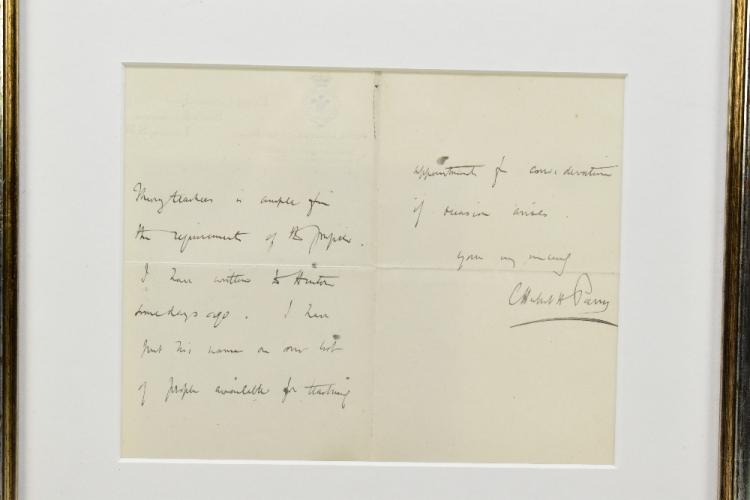 many teachers is ample for
the requirements of the pupils.
I have written to Hinton
some days ago. I have
put his name on our list
of people available for teaching
appointments for consideration
if occasion arises.
Yours very sincerely
C Hubert H Parry